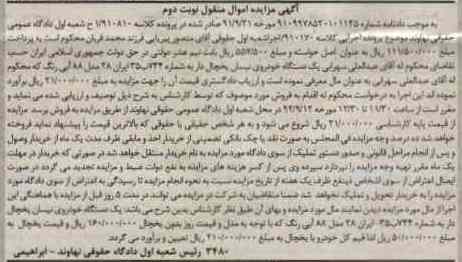 آگهی مزایده اموال منقول نوبت دوم
به موجب دادنامه شماره ۹۱۰۹۹۷۸۵۲۰۱۰۱۱۴۵ مورخه ۹۱/۹/۲۱ صادر شده در پرونده کلاسه ۹۱۰۸۱۰/ ۱ ح شعبه اول دادگاه عمومی
حقوقی نهاوند موضوع پرونده اجرایی کلاسه ۹۱۰۰۱۷ اجرائی شعبه اول حقوقی آقای منصور پیرانی فرزند محمد قربان محکوم است به پرداخت
مبلغ ۱۱۱/۵۰۰/۰۰۰ ریال به عنوان اصل خواسته و مبلغ ۵۵۷/۵۰۰ ریال بابت نیم عشر دولتی در حق دولت جمهوری اسلامی ایران حسب
تقاضای محکوم له آقای عبدالعلی سهرابی یک دستگاه خودروی نیسان یخچال دار به شماره ۷۳۴س۳۵ ایران ۲۸ مدل ۸۸ آبی رنگ که محکوم
له آقای عبدالعلی سهرابی به عنوان مال معرفی نموده است و ارزیاب دادگستری قیمت آن را جهت مزایده به مبلغ ۲۱۰/۰۰۰/۰۰۰ ریال برآورد
نموده لذا این اجرا به درخواست محکوم له اقدام به فروش مورد موصوف که توسط کارشناس به شرح ذیل توصیف و ارزیابی شده می نماید و
مقرر است از ساعت ۱۱/۳۰ تا ۱۲/۳۰ مورخ ۹۲/۹/۱۲ در محل شعبه اول دادگاه عمومی حقوقی نهاوند از طریق مزایده به فروش برسد مزایده
از قیمت پایه کارشناسی ۲۱۰/۰۰۰/۰۰۰ ریال شروع می شود و به هر شخص حقیقی یا حقوقی که بالاترین قیمت را پیشنهاد نماید فروخته
خواهد شد ده درصد وجه مزایده فی المجلس به صورت نقد یا چک بانکی تضمینی از خریدار اخذ و مابقی ظرف مدت یک ماه از خریدار وصول
و پس از انجام مراحل قانونی و صدور دستور تملیک از سوی دادگاه مورد مزایده به نام خریدار منتقل خواهد شد در صورتی که خریدار در مهلت
یک ماه مقرر تهیه وجه مزایده را نپردازد سپرده وی پس از کسر هزینه های مزایده به نفع دولت ضبط و مزایده تجدید می گردد در صورت
ایصال اعتراض از سوی اشخاص ذینفع ظرف یک هفته از تاریخ مزایده نسبت به نحوه انجام مزایده تا رسیدگی به اعتراض از سوی دادگاه مورد
مزایده را به خریدار تحویل و تملیک نخواهد شد ضمنا متقاضیان به شرکت در مزایده می توانند در مدت ۵ روز قبل از مزایده با هماهنگی این
اجرا از مال مورد مزایده دیدن نمایند مال مورد مزایده و بهای آن طبق نظر کارشناس بدین شرح می باشد: یک دستگاه خودروی نیسان یخچال
دار به شماره ۷۳۴س۳۵ ایران ۲۸ مدل ۸۸ آبی رنگ که با توجه به مدل و قیمت روز بدون یخچال ۱۶۰/۰۰۰/۰۰۰ ریال و قیمت یخچال به
مبلغ ۵۰/۰۰۰/۰۰۰ ریال لذا قیم کل خودرو با یخچال به مبلغ ۲۱۰/۰۰۰/۰۰۰ ریال تعیین و برآورد می گردد
۳۴۸۰ رئیس شعبه اول دادگاه حقوقی نهاوند - ابراهیمی